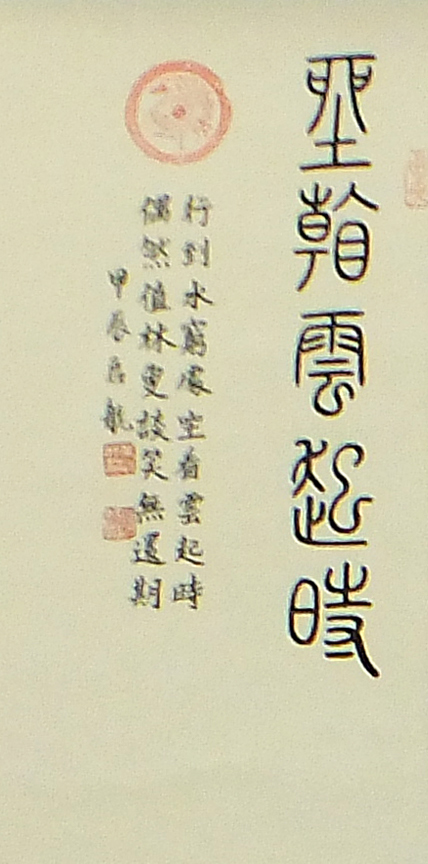 坐看雲起時
行到水窮處坐看雲起時
偶然值林叟談笑無還期
甲辰